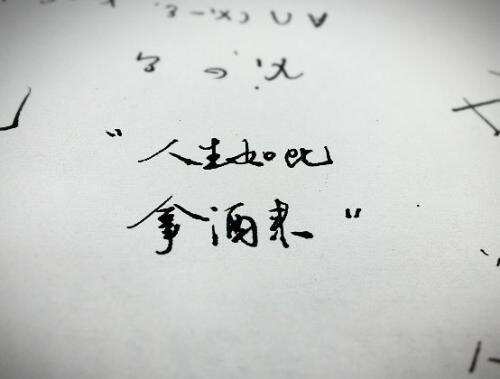 "人生如此
拿酒来"